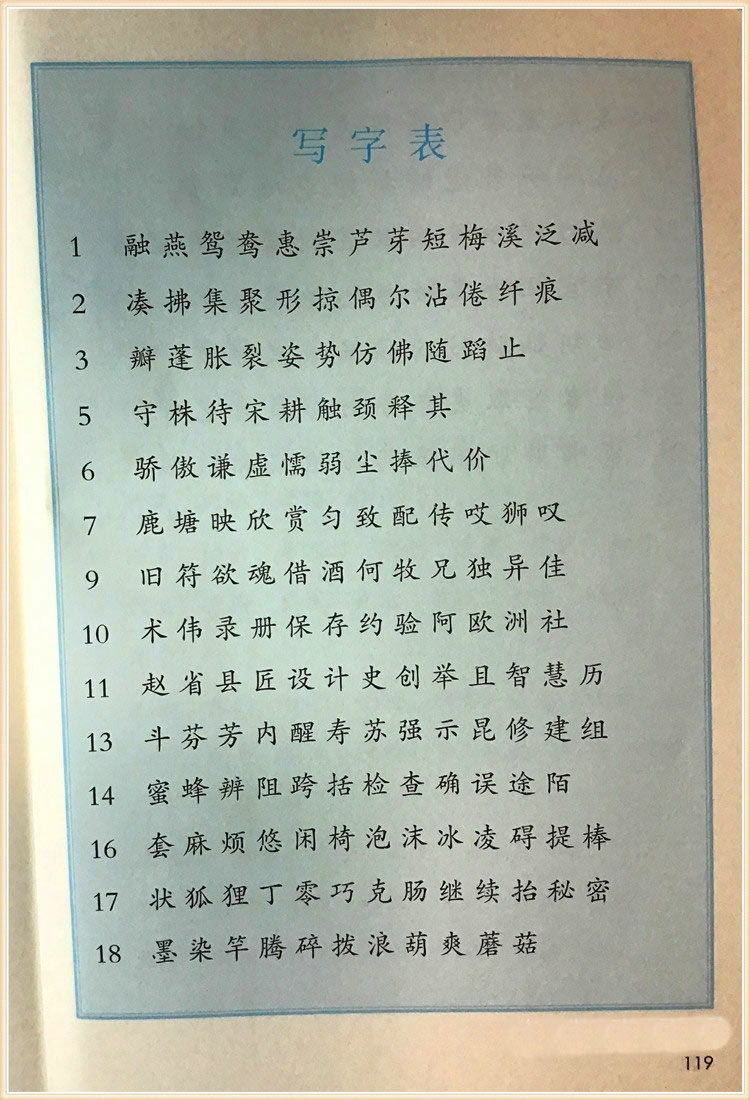 写字表
1 融燕鸳鸯惠崇芦芽短梅溪泛减
2 凑拂集聚形掠偶尔沾倦纤痕
3 瓣蓬胀裂姿势仿佛随蹈止
5 守株待宋耕触颈释其
6 骄傲谦虚懦弱尘捧代价
7 鹿塘映欣赏匀致配传哎狮叹
9 旧符欲魂借酒何牧兄独异佳
10 术伟录册保存约验阿欧洲社
11 赵省县匠设计史创举且智慧历
13 斗芬芳内醒寿苏强示昆修建组
14 蜜蜂辨阻跨括检查确误途陌
16 套麻烦悠闲椅泡沫冰凌碍提棒
17 状狐狸丁零巧克肠继续抬秘密
18 墨染竿腾碎拨浪葫爽蘑菇
119